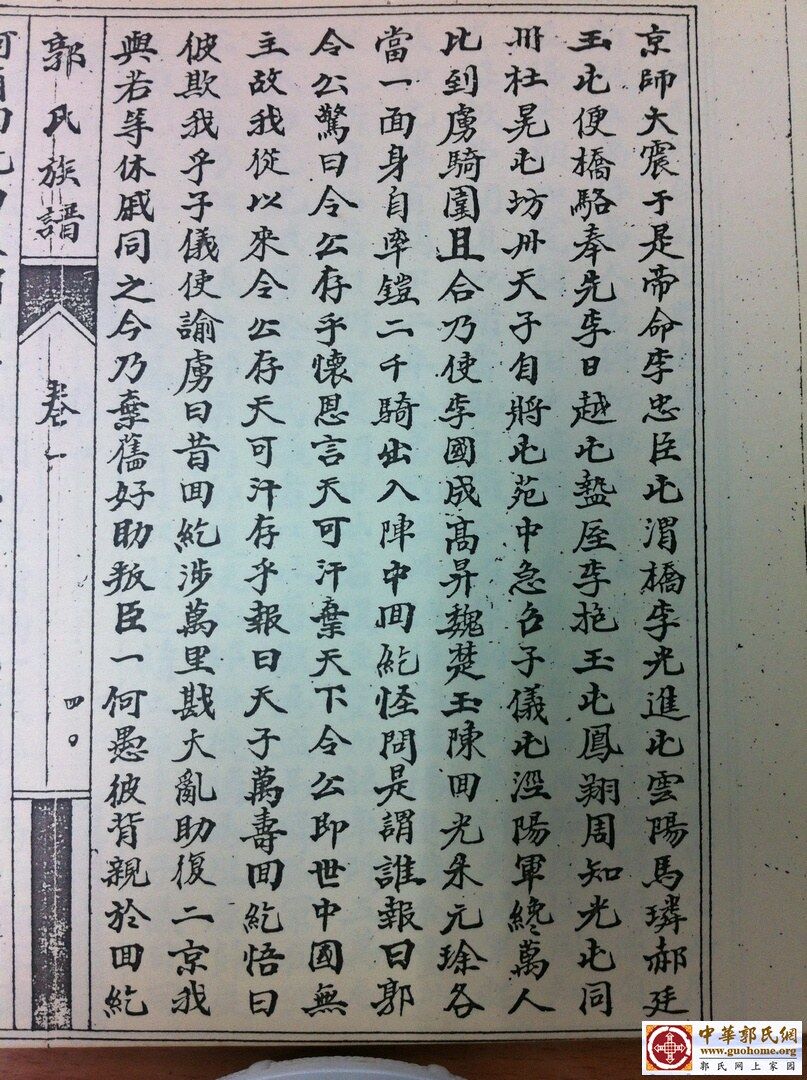 京師大震于是帝命李忠臣屯渭橋李光進屯雲陽馬璘郝廷
玉屯便橋駱奉先李日越屯盩厔李抱玉屯鳳翔周知光屯同
州杜晃屯坊州天子自將屯苑中急召子儀屯涇陽軍纔萬人
比到虜騎圍且合乃使李國成高昇魏楚玉陳回光朱元琮各
當一面身自率鎧二千騎出入陣中回紇怪問是謂誰報曰郭
令公驚曰令公存乎懷恩言天可汗棄天下令公即世中國無
主故我從以來令公存天可汗存乎報曰天子萬壽回紇悟曰
彼欺我乎子儀使諭虜曰昔回紇涉萬里戡大亂助復二京我
與若等休戚同之今乃棄舊好助叛臣一何愚彼背親於回紇
郭氏族譜
卷一
四
中華郭氏網
www.guohome.org
郭氏網上家園